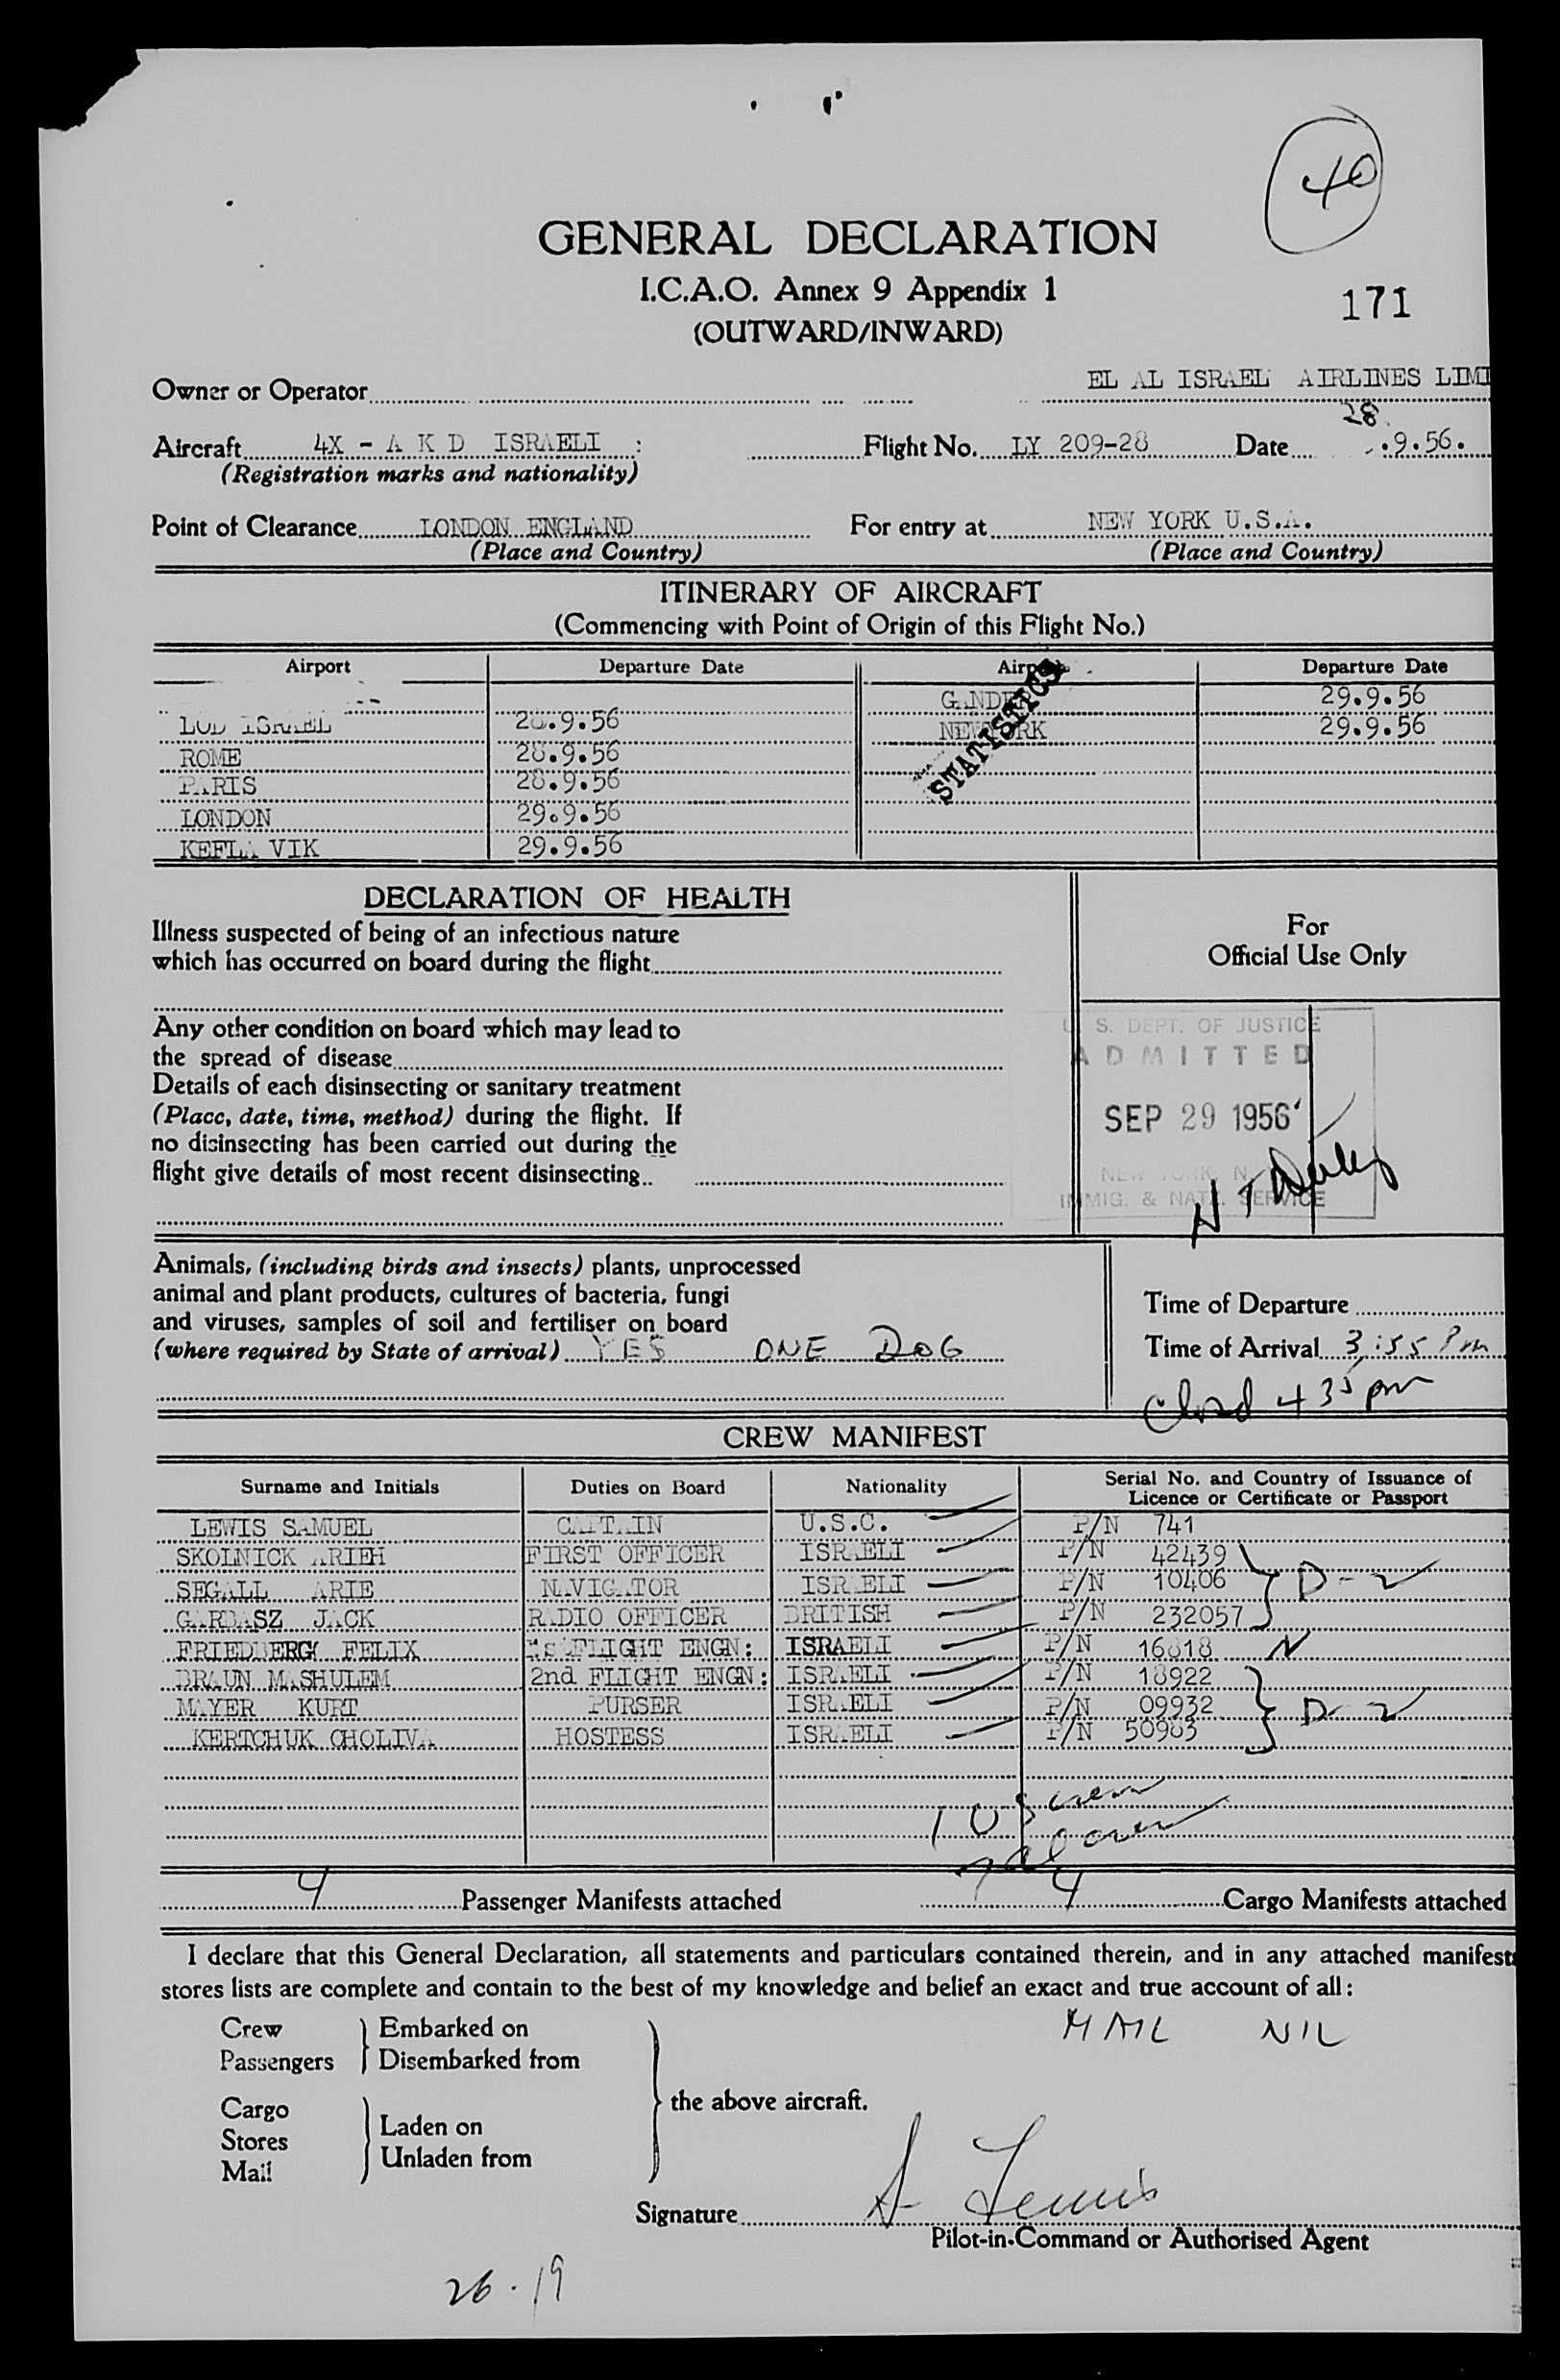 40
GENERAL DECLARATION
I.C.A.O. Annex 9 Appendix 1
171
(OUTWARD/INWARD)
Owner or Operator EL AL ISRAEL AIRLINES LIMI
28
Aircraft 4X - A K D ISRAELI : Flight No. LY 209-28 Date .9.56.
(Registration marks and nationality)
Point of Clearance LONDON ENGLAND For entry at NEW YORK U.S.A.
(Place and Country) (Place and Country)
ITINERARY OF AIRCRAFT
(Commencing with Point of Origin of this Flight No.)
Airport Departure Date Airport Departure Date
GANDER 29.9.56
LOD ISRAEL 28.9.56 NEW YORK 29.9.56
ROME 28.9.56
PARIS 28.9.56
STATISTICS
LONDON 29.9.56
KEFLA VIK 29.9.56
DECLARATION OF HEALTH
Illness suspected of being of an infectious nature
which has occurred on board during the flight
For
Official Use Only
Any other condition on board which may lead to
the spread of disease
Details of each disinsecting or sanitary treatment
(Place, date, time, method) during the flight. If
no disinsecting has been carried out during the
flight give details of most recent disinsecting
U. S. DEPT. OF JUSTICE
ADMITTED
SEP 29 1956
NEW YORK, N.
IMMIG. & NATZ. SERVICE
Animals, (including birds and insects) plants, unprocessed
animal and plant products, cultures of bacteria, fungi
and viruses, samples of soil and fertiliser on board
(where required by State of arrival) YES ONE DOG
Time of Departure
Time of Arrival 3:55 Pm
Closd 4 35 pm
CREW MANIFEST
Surname and Initials Duties on Board Nationality Serial No. and Country of Issuance of
Licence or Certificate or Passport
LEWIS SAMUEL CAPTAIN U.S.C. P/N 741
SKOLNICK ARIEH FIRST OFFICER ISRAELI P/N 42439
SEGALL ARIE NAVIGATOR ISRAELI P/N 10406 D-2
GARBASZ JACK RADIO OFFICER BRITISH P/N 232057
FRIEDBERG FELIX FLIGHT ENGN: ISRAELI P/N 16818 N
BRAUN MASHULEM 2nd FLIGHT ENGN: ISRAELI P/N 18922
MAYER KURT PURSER ISRAELI P/N 09932 D-2
KERTCHUK CHOLIVA HOSTESS ISRAELI P/N 50983
1 US crew
7 al crew
4 Passenger Manifests attached 4 Cargo Manifests attached
I declare that this General Declaration, all statements and particulars contained therein, and in any attached manifests
stores lists are complete and contain to the best of my knowledge and belief an exact and true account of all:
Crew Embarked on MAIL NIL
Passengers Disembarked from
the above aircraft.
Cargo
Laden on
Stores
Unladen from
Mail
Signature S Lewis
Pilot-in-Command or Authorised Agent
26.19